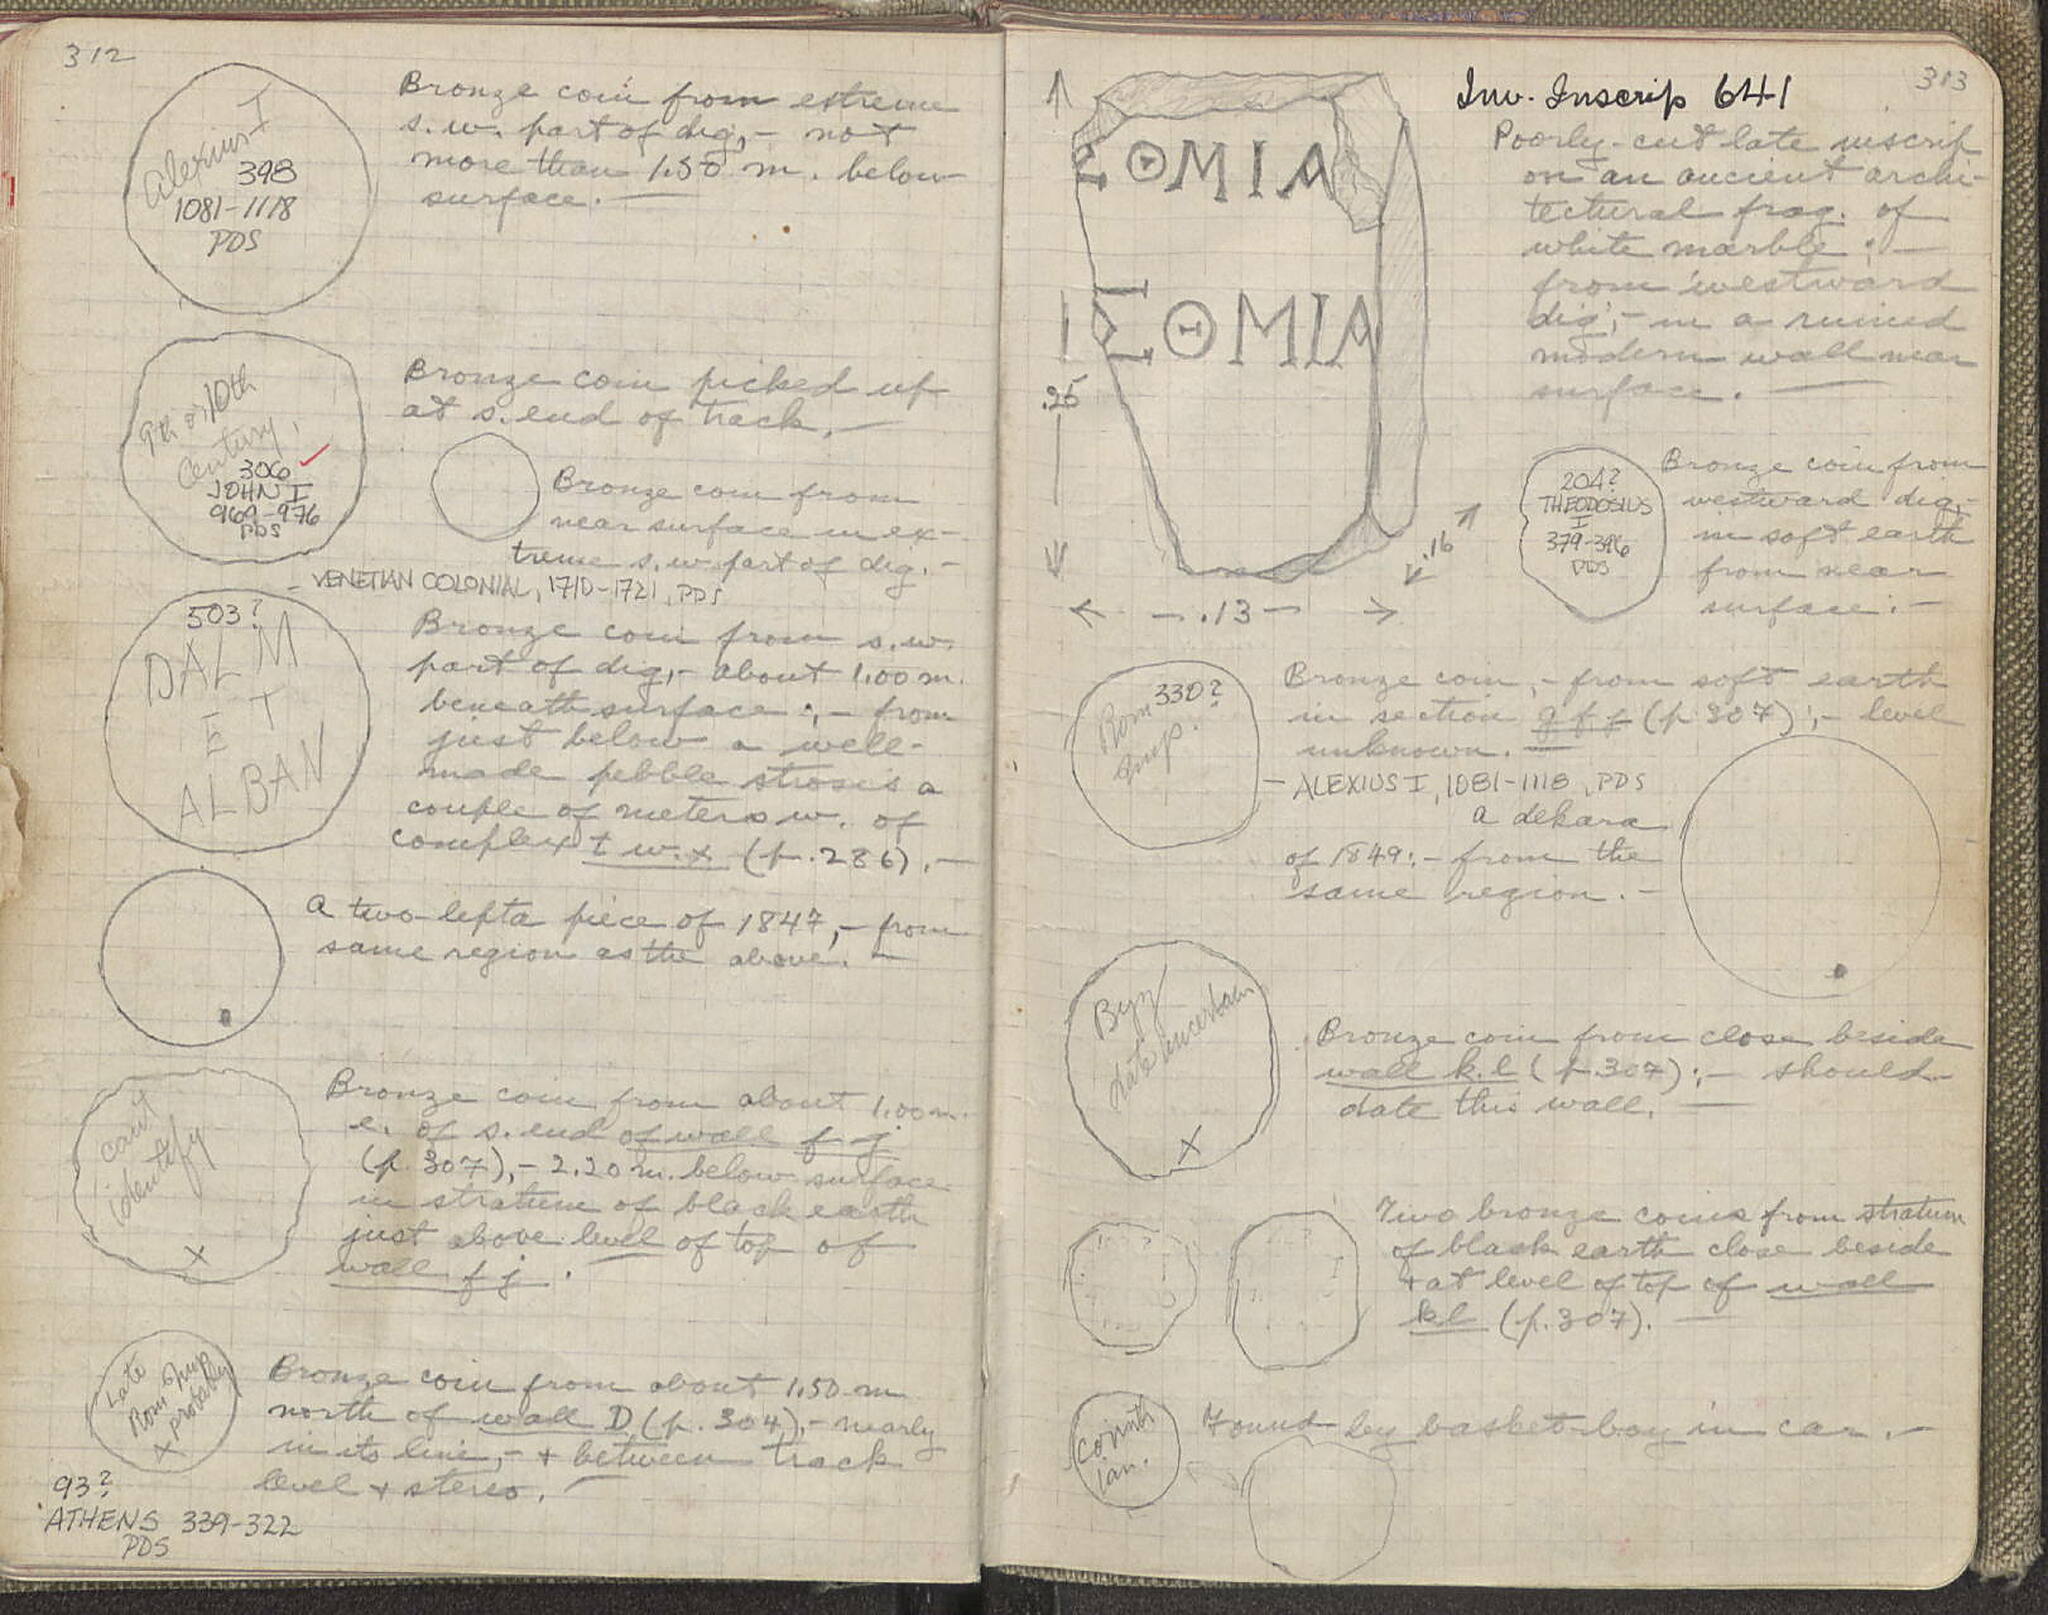 312
Alexius I
398
1081-1118
PDS
Bronze coin from extreme
s.w. part of dig,- not
more than 1.50 m. below
surface.—
9th or 10th
Century,
306
JOHN I
969-976
PDS
Bronze coin picked up
at s. end of track.—
Bronze coin from
near surface in ex-
treme s.w. part of dig.-
- VENETIAN COLONIAL, 1710-1721, PDS
503?
DALM
ET
ALBAN
Bronze coin from s.w.
part of dig,- about 1.00 m.
beneath surface:,- from
just below a well-
made pebble strosis a
couple of meters w. of
complex t w.x (p.286).—
A two-lepta piece of 1847,- from
same region as the above.—
can't
identify
x
Bronze coin from about 1.00 m.
e. of s. end of wall f j
(p. 307),- 2.20 m. below surface
in stratum of black earth
just above level of top of
wall f j.
Late
Rom Imp
probably
x
Bronze coin from about 1.50 m
north of wall D (p. 304),- nearly
in its line,- + between track
level + stereo.—
93?
ATHENS 339-322
PDS
313
Inv. Inscrip 641
ΣΘΜΙΑ
ΙΣΘΜΙΑ
.25
.13
.16
Poorly-cut late inscrip
on an ancient archi-
tectural frag. of
white marble:—
from westward
dig,- in a ruined
modern wall near
surface.—
204?
THEODOSIUS
I
379-396
PDS
Bronze coin from
westward dig,-
in soft earth
from near
surface.—
Rom
Imp.
330?
Bronze coin,- from soft earth
in section g f f (p. 307):,- level
unknown.—
- ALEXIUS I, 1081-1118, PDS
A dekara
of 1849:- from the
same region.—
Byz
date uncertain
x
Bronze coin from close beside
wall k.l (p.307):,- should
date this wall.—
Two bronze coins from stratum
of black earth close beside
+ at level of top of wall
kl (p.307).—
Corinth
ian.
Found by basket-boy in car.—